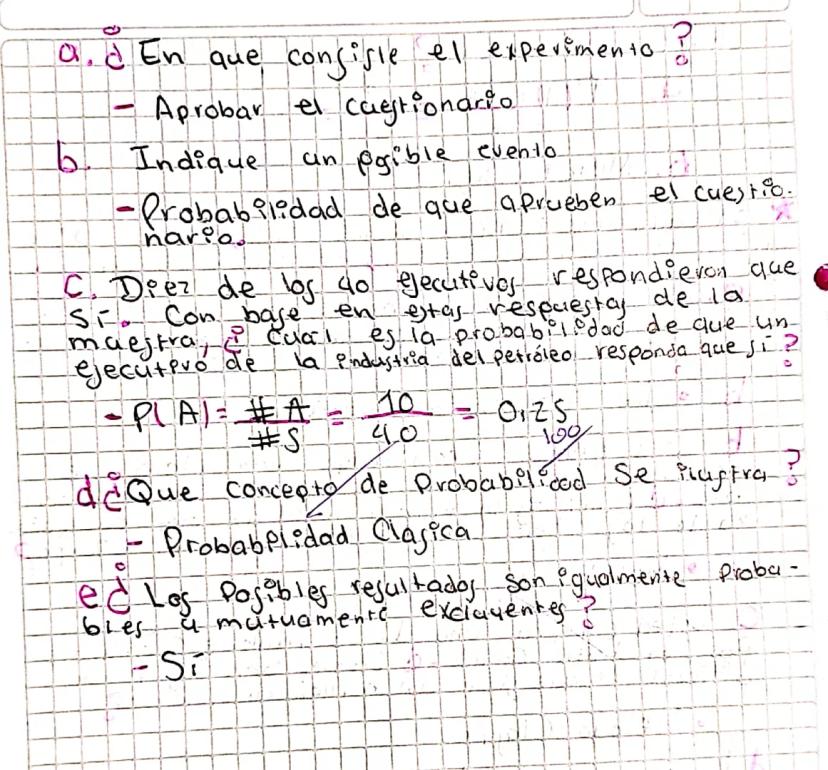 a. ¿ En que consiste el experimento ?
- Aprobar el cuestionario
b. Indique un posible evento
- Probabilidad de que aprueben el cuestio-
nario.
C. Diez de los 40 ejecutivos respondieron que
Sí. Con base en estas respuestas de la
muestra, ¿ Cual es la probabilidad de que un
ejecutivo de la industria del petróleo responda que sí ?
- P(A) = #A/#S = 10/40 = 0,25
100
d ¿Que concepto de Probabilidad Se ilustra ?
- Probabilidad Clasica
e ¿ Los Posibles resultados son igualmente Proba-
bles y mutuamente excluyentes ?
- Sí